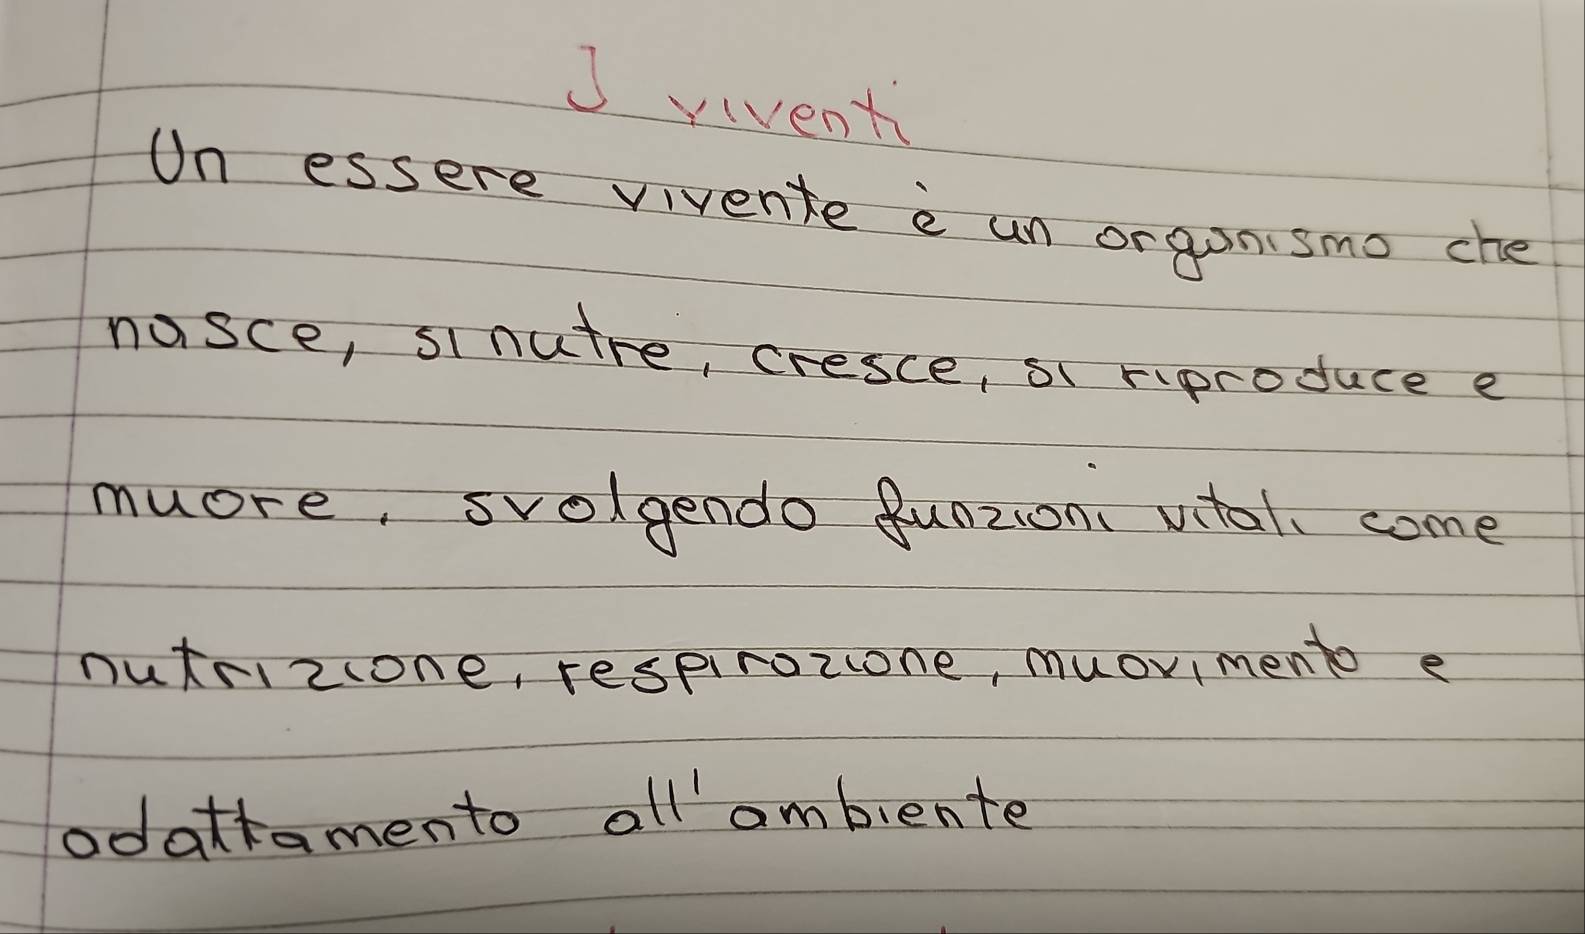 I viventi
Un essere vivente è un organismo che
nasce, si nutre, cresce, si riproduce e
muore, svolgendo funzioni vitali come
nutrizione, respirazione, muovimento e
adattamento all'ambiente